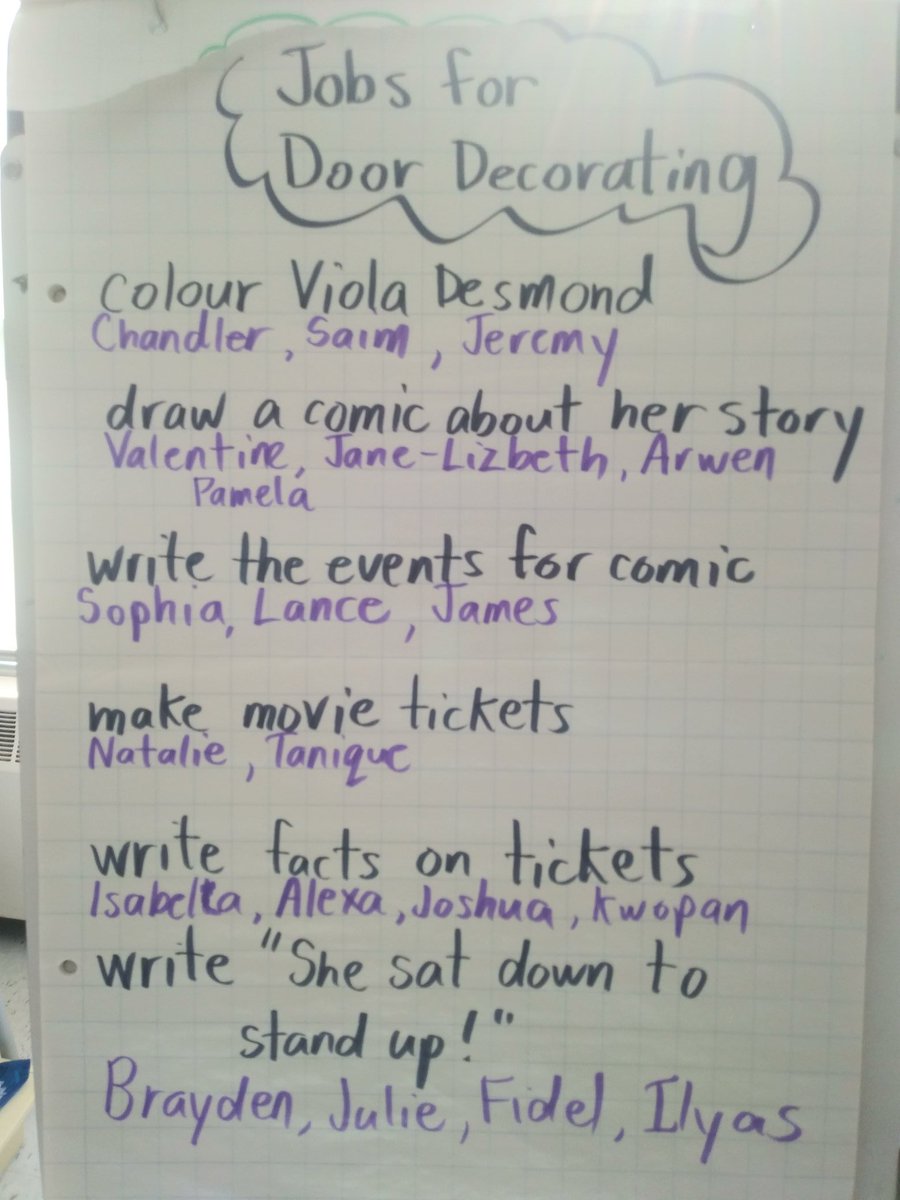 Jobs for
Door Decorating
colour Viola Desmond
Chandler, Saim, Jeremy
draw a comic about her story
Valentine, Jane-Lizbeth, Arwen
Pamela
write the events for comic
Sophia, Lance, James
make movie tickets
Natalie, Tanique
write facts on tickets
Isabella, Alexa, Joshua, Kwopan
write "She sat down to
stand up!"
Brayden, Julie, Fidel, Ilyas